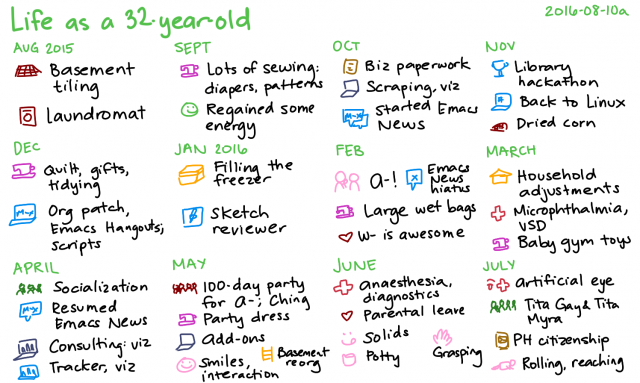 Life as a 32-year-old
2016-08-10a
AUG 2015
Basement
tiling
Laundromat
SEPT
Lots of sewing:
diapers, patterns
Regained some
energy
OCT
Biz paperwork
Scraping, viz
M-x
Started Emacs
News
NOV
Library
hackathon
Back to Linux
Dried corn
DEC
Quilt, gifts,
tidying
M-x
Org patch,
Emacs Hangouts,
scripts
JAN 2016
Filling the
freezer
Sketch
reviewer
FEB
A-!
X
Emacs
News
hiatus
Large wet bags
W- is awesome
MARCH
Household
adjustments
Microphthalmia,
VSD
Baby gym toys
APRIL
Socialization
M-x
Resumed
Emacs News
Consulting: viz
Tracker, viz
MAY
100-day party
for A-; Ching
Party dress
Add-ons
Smiles,
interaction
Basement
reorg
JUNE
Anaesthesia,
diagnostics
Parental leave
Solids
Potty
Grasping
JULY
Artificial eye
Tita Gay & Tita
Myra
PH citizenship
Rolling, reaching